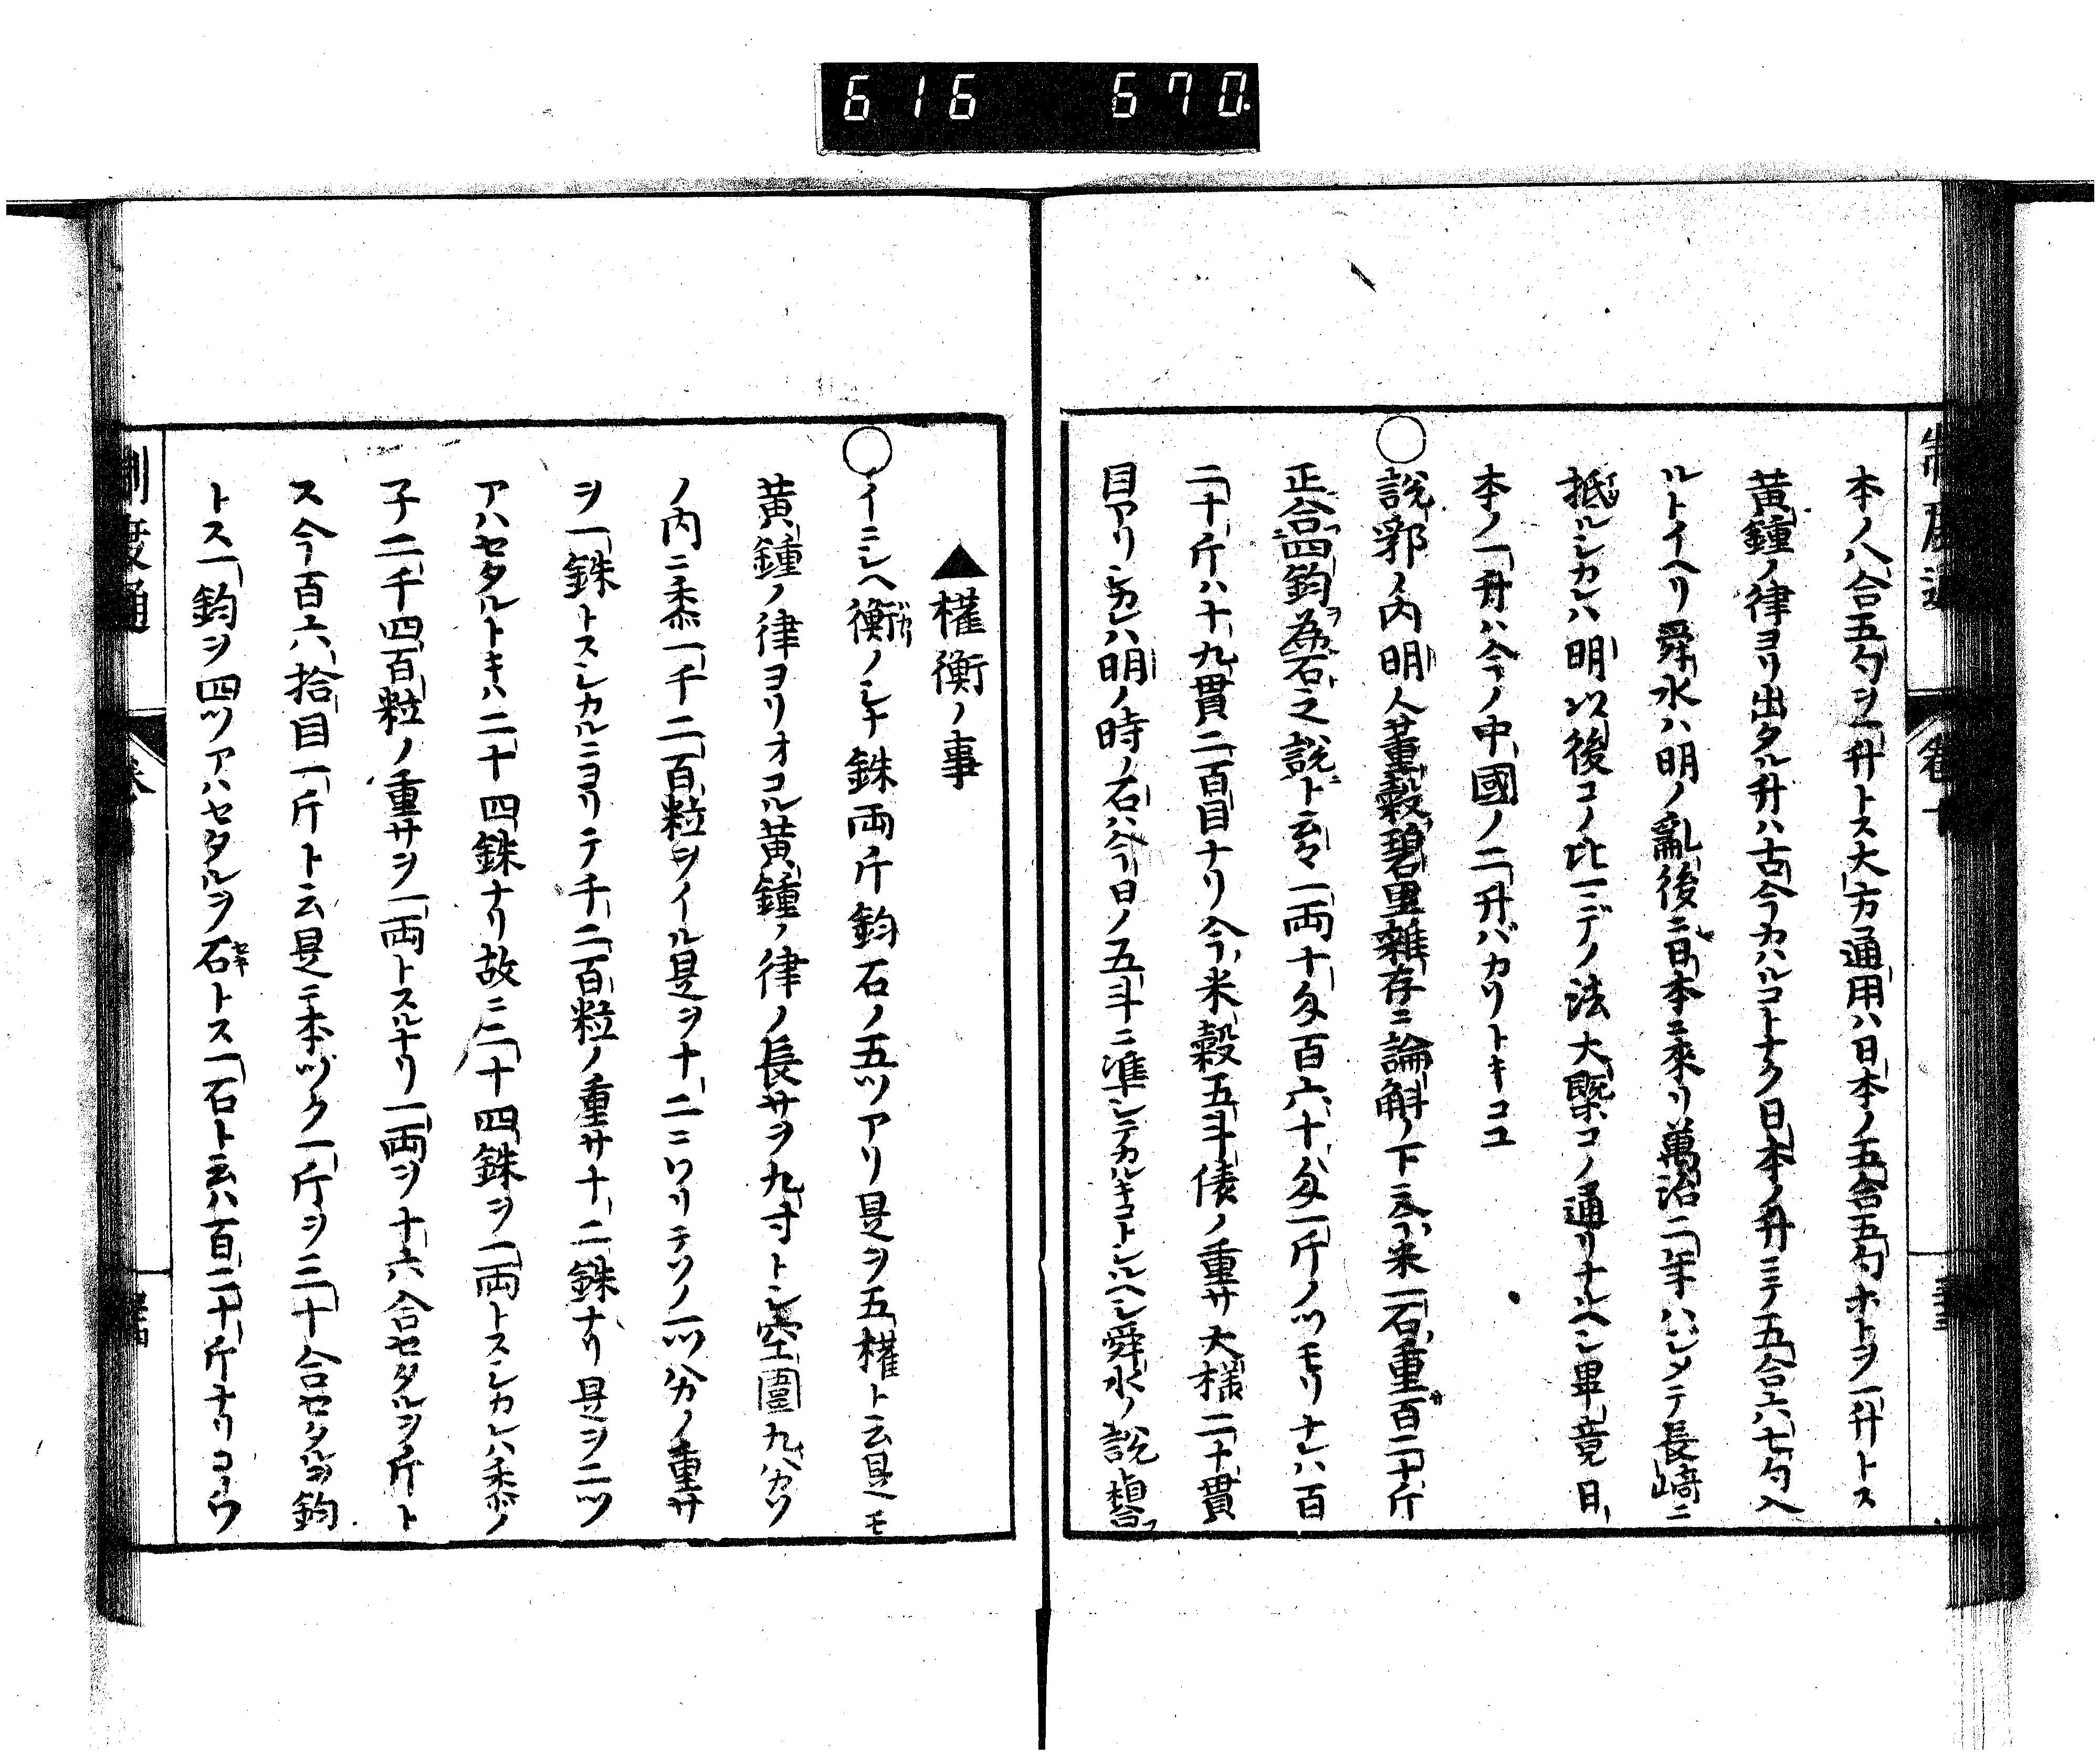 616 670
制度通 卷十
本ノ八合五勺ヲ一升トス大方通用ハ日本ノ五合五勺ホトヲ一升トス
黄鐘ノ律ヨリ出タル升ハ古今カハルコトナク日本ノ升ニテ五合六七勺入
ルトイヘリ舜水ハ明ノ亂後ニ日本ニ來リ萬治二年ハジメテ長崎ニ
抵ルシカレハ明以後コノ比マデノ法大槩コノ通リナルヘシ畢竟日
本ノ一升ハ今ノ中國ノ二升バカリトキコユ
○說郛ノ内明人董穀碧里雜存ニ論斛ノ下ニ今米一石重百二十斤
正合四鈞爲石之說ト云々一両十匁百六十匁一斤ノツモリナレハ百
二十斤ハ十九貫二百目ナリ今米穀五斗俵ノ重サ大様二十貫
目アリシカレハ明ノ時ノ石ハ今日ノ五斗ニ準シテカルキコトシルヘシ舜水ノ說ト暗合フ
▲權衡ノ事
○イニシヘ衡ノシナ銖両斤鈞石ノ五ツアリ是ヲ五權ト云是モ
黄鐘ノ律ヨリオコル黄鐘ノ律ノ長サヲ九寸トシ空圍九分カツ
ノ内ニ黍一千二百粒ヲイル是ヲ十二ニワリテソノ一ツ分カノ重サ
ヲ一銖トスシカルニヨリテ千二百粒ノ重サ十二銖ナリ是ヲ二ツ
アハセタルトキハ二十四銖ナリ故ニ二十四銖ヲ一両トスシカレハ黍ノ
子二千四百粒ノ重サヲ一両トスルナリ一両ヲ十六合セタルヲ斤ト
ス今百六拾目一斤ト云是ニ本ヅク一斤ヲ三十合セタルヲ鈞
トス一鈞ヲ四ツアハセタルヲ石トス一石ト云ハ百二十斤ナリコノワ
制度通 卷